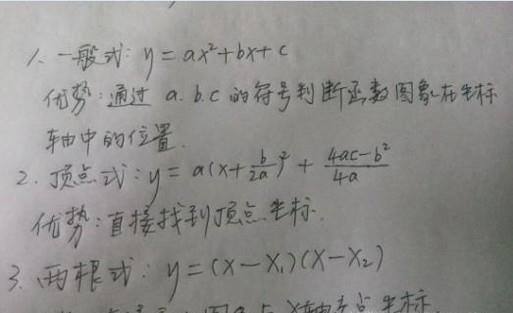 1. 一般式: y = ax²+bx+c
优势:通过 a.b.c 的符号判断函数图象在坐标
轴中的位置.
2. 顶点式: y = a(x+\frac{b}{2a})² + \frac{4ac-b²}{4a}
优势:直接找到顶点坐标.
3. 两根式: y=(x-x₁)(x-x₂)
x轴交点坐标.